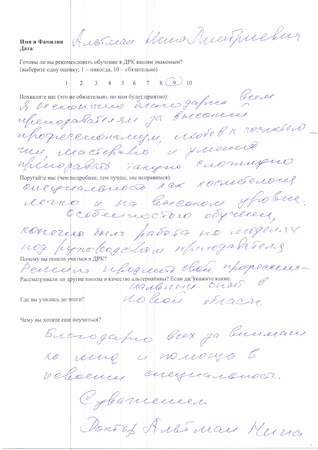 Имя и Фамилия Альтман Нина Дмитриевич
Дата:
Готовы ли вы рекомендовать обучение в ДРК вашим знакомым?
(выберите одну оценку, 1 – никогда, 10 – обязательно)
1 2 3 4 5 6 7 8 9 10
Похвалите нас (это не обязательно, но нам будет приятно):
Я бесконечно благодарна всем
преподавателям за высокий
профессионализм, любовь к
мастерство и умение
преподавать такую сложную
Поругайте нас (чем подробнее, тем лучше, мы исправимся):
специальность как косметология
легко и на высоком уровне.
Особенностью обучения,
конечно была работа на моделях
под руководством преподавателя
Почему вы пошли учиться в ДРК?
Решила продолжить свой
Рассматривали ли другие школы в качестве альтернативы? Если да, укажите какие.
опыт в
Где вы учились до этого? новой области.
Чему вы хотите еще научиться?
Благодарю всех за внимание
ко мне и помощь в
освоении специальности.
С уважением
Доктор Альтман Нина